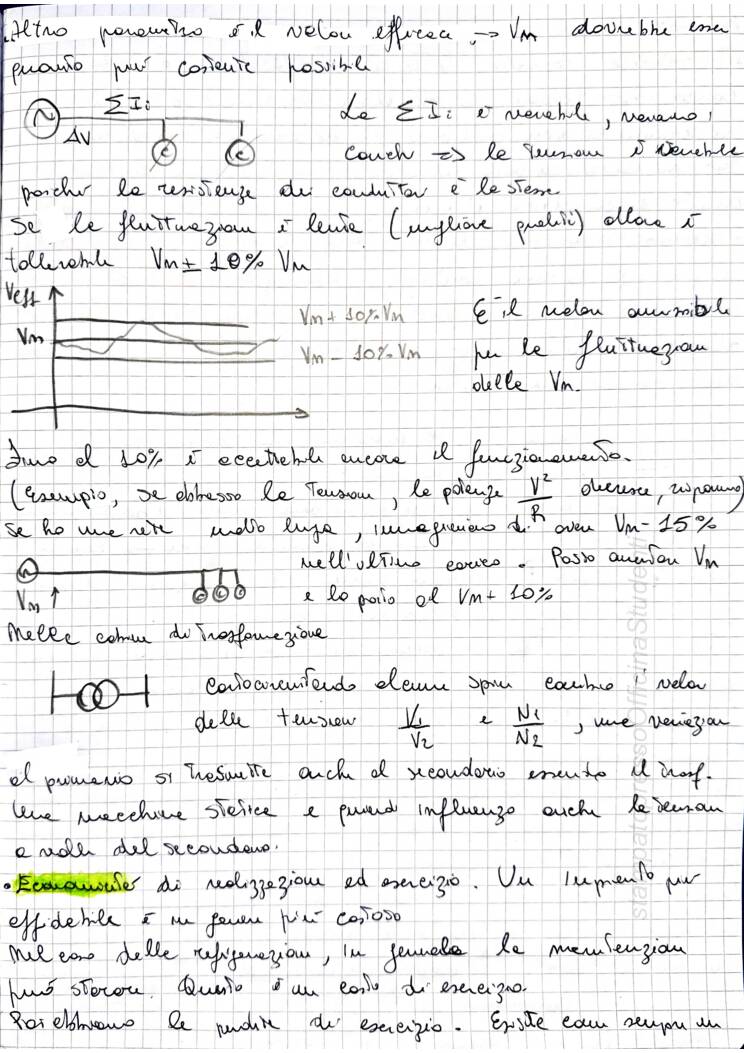 Altro parametro è il valore efficace → Vm dovrebbe essere
quanto più costante possibile
ΣIi
ΔV
c c
La ΣIi è variabile, variano i
carichi => la tensione è variabile
perché la resistenza dei conduttori è la stessa
Se la fluttuazione è lenta (migliore qualità) allora è
tollerabile Vm ± 10% Vm
Veff
Vm
Vm + 10% Vm
Vm - 10% Vm
È il valore ammissibile
per le fluttuazioni
delle Vm.
Fino al 10% è accettabile ancora il funzionamento.
(Esempio, se abbasso la tensione, la potenza V²/R decresce, risparmio)
Se ho una rete molto lunga, immaginiamo di avere Vm - 15%
nell'ultimo carico. Posso aumentare Vm
e lo porto al Vm + 10%
Vm ↑
c c c
Nelle cabine di trasformazione
cortocircuitando alcune spire cambio i valori
delle tensioni V1/V2 e N1/N2, una variazione
al primario si trasmette anche al secondario essendo il trasf.
una macchina statica e quindi influenzo anche la tensione
a valle del secondario.
• Economicità di realizzazione ed esercizio. Un impianto più
affidabile è in genere più costoso
Nel caso delle refrigerazioni, in generale la manutenzione
può Questo è un costo di esercizio.
Poi abbiamo le perdite di esercizio. Esiste sempre un
stampato pressoOfficinaStudenti